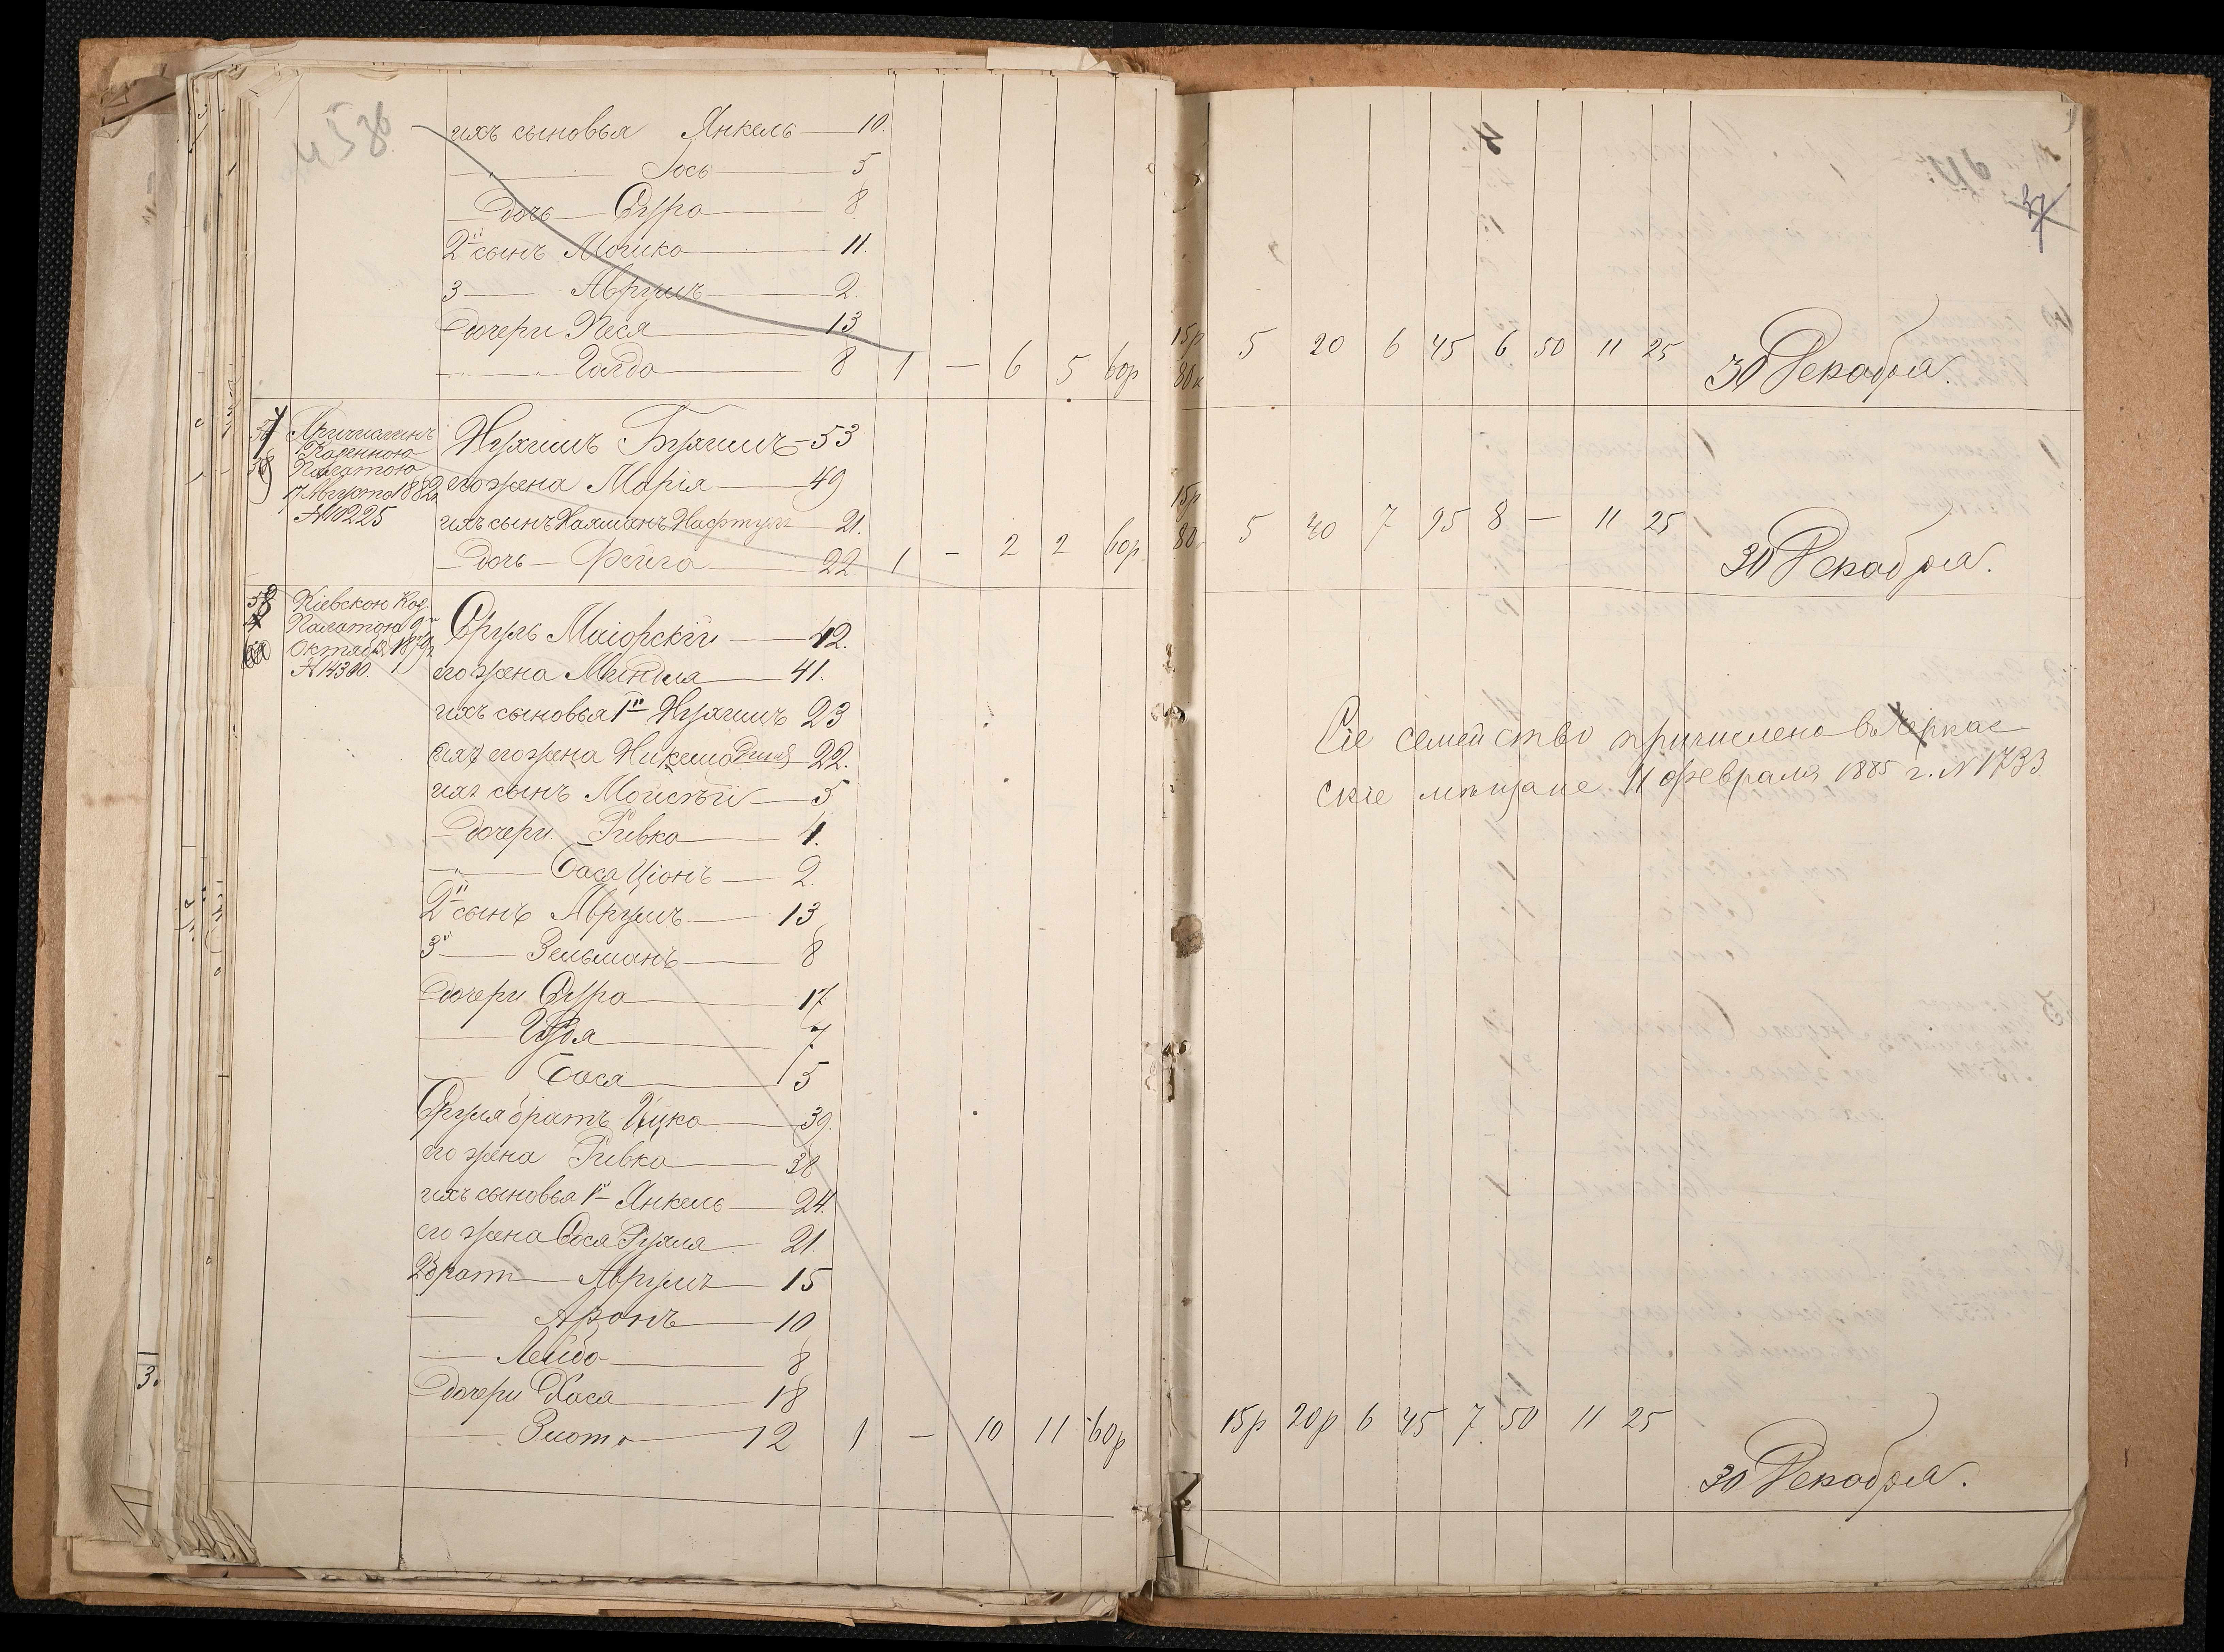 ихъ сыновья Янкель — 10.
Іось — 5
дочь — Сура — 8
2й сынъ Мошко — 11.
3 — Аврумъ — 2.
дочери Песя — 13
Голда — 8 1 — 6 5 60р 15р 80к 5 20 6 45 6 50 11 25 30 Декабря.
57 Причисленъ
Казенною
Палатою
17 Августа 1882
№ 10225
Нухимъ — 53
его жена Марія — 49
ихъ сынъ Нахманъ Нафтула 21.
дочь — Фейга — 22 1 — 2 2 60р 15р 80 5 40 7 95 8 — 11 25 30 Декабря.
58 Кіевскою Каз.
Палатою 9го
Октября
№ 14300.
Сруль Маіорскій — 42.
его жена Миндля — 41.
ихъ сыновья 1й Нухимъ 23
его жена 22.
ихъ сынъ Мойсѣй — 5
дочери Ривка — 4.
Бася Ціонъ — 2.
2й сынъ Аврумъ — 13
3й — Зельманъ — 8
дочери Сура — 17
7
Бася — 5
Сруля братъ Ицко — 39.
его жена Ривка — 38
ихъ сыновья 1й Янкель — 24.
его жена Сося Рухля 21.
2 братъ Аврумъ — 15
Аронъ — 10
Лейба — 8
дочери Хася — 18
Злота 12 1 — 10 11 60р 15р 20р 6 45 7 50 11 25
30 Декабря.
Сіе семейство причислено въ Черкас
скіе мѣщане 11 февраля 1885 г. № 1733